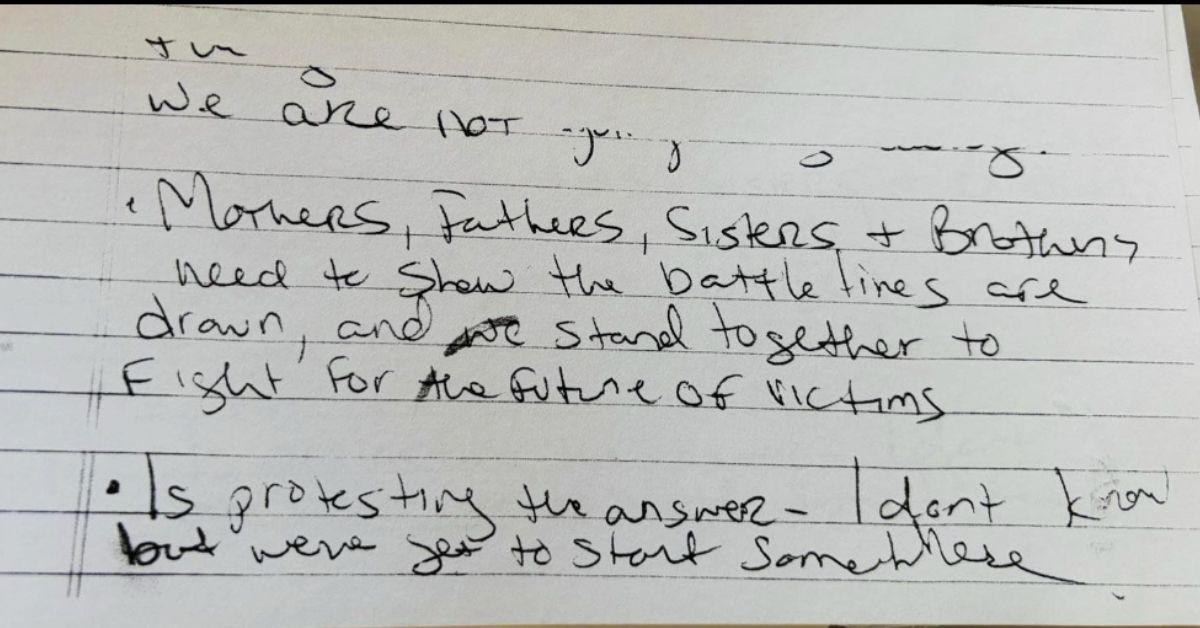 We are NOT
• Mothers, Fathers, Sisters + Brothers
need to show the battle lines are
drawn, and we stand together to
Fight for the future of victims
• Is protesting the answer - I dont know
but weve got to start somewhere